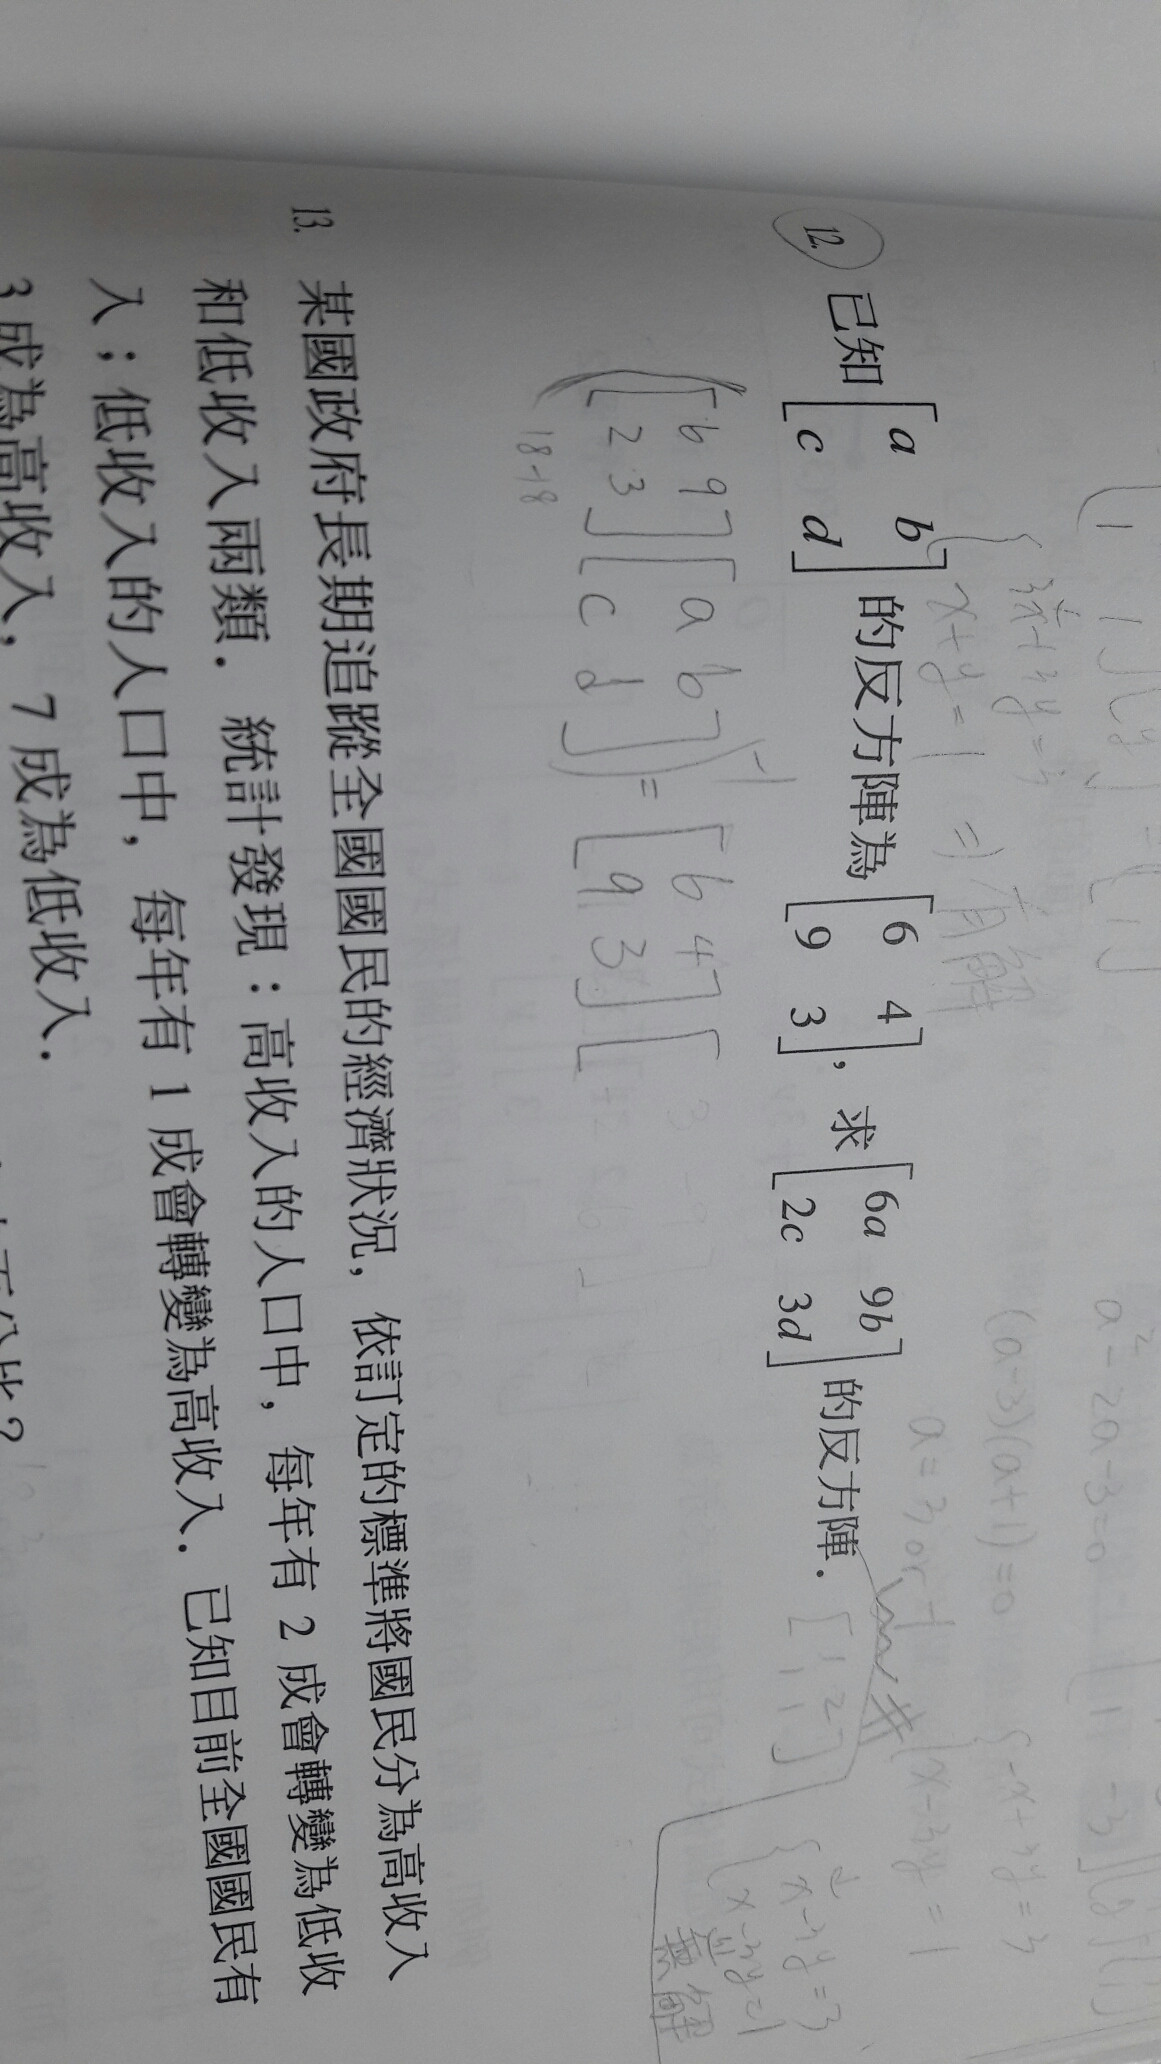 a²-2a-3=0
(a-3)(a+1)=0
a=3 or -1
x+y=1 ⇒ 有解
{-x+3y=3
x-3y=1
12. 已知 [a b; c d] 的反方陣為 [6 4; 9 3], 求 [6a 9b; 2c 3d] 的反方陣.
[1 2; 1 1]
{x-3y=3
x-3y=1
無解
([6 9; 2 3][a b; c d])⁻¹ = [6 4; 9 3][3 -9
18-18
13. 某國政府長期追蹤全國國民的經濟狀況, 依訂定的標準將國民分為高收入
和低收入兩類. 統計發現:高收入的人口中, 每年有 2 成會轉變為低收
入;低收入的人口中, 每年有 1 成會轉變為高收入. 已知目前全國國民有
3 成為高收入, 7 成為低收入.